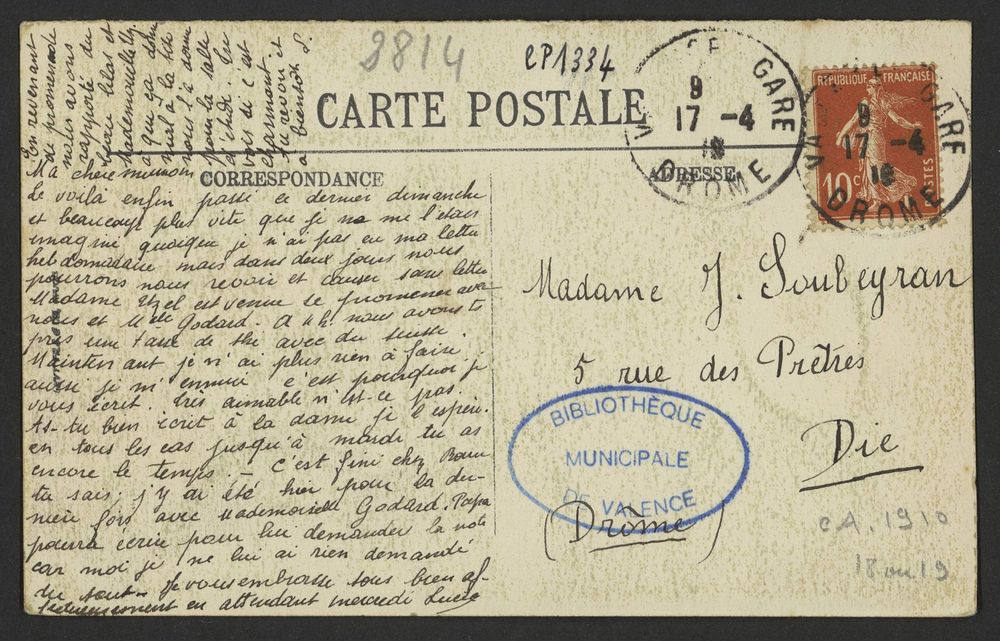 En revenant
de promenade
nous avons
rapporté du
beau lilas et
Mademoiselle
nous l'a donné
pour la salle
d'étude.
voir si c'est
charmant
te revoir et
à bientôt
3814
CP1334
CARTE POSTALE
CORRESPONDANCE
ADRESSE
GARE
9
17 -4
DROME
RÉPUBLIQUE FRANÇAISE
10c
POSTES
GARE
9
17 -4
DROME
Ma chère maman
Le voilà enfin passé ce dernier dimanche
et beaucoup plus vite que je ne me l'étais
imaginé quoique je n'ai pas eu ma lettre
hebdomadaire mais dans deux jours nous
pourrons nous revoir et causer sans lettre
Madame est venue se promener avec
nous et Mlle Godard. A 4h. nous avons
pris une tasse de thé avec du
Maintenant je n'ai plus rien à faire
aussi je m'ennuie c'est pourquoi je
vous écrit. Très aimable n'est-ce pas.
As-tu bien écrit à la dame je l'espère.
en tous les cas jusqu'à mardi tu as
encore le temps. - C'est fini chez
tu sais; j'y ai été hier pour la der-
nière fois avec Mademoiselle Godard. Papa
pourra écrire pour lui demander la note
car moi je ne lui ai rien demandé
du tout - Je vous embrasse tous bien af-
fectueusement en attendant mercredi Lucie
Madame J. Soubeyran
5 rue des Prêtres
Die
(Drôme)
BIBLIOTHÈQUE
MUNICIPALE
DE VALENCE
CA. 1910
18 ou 19